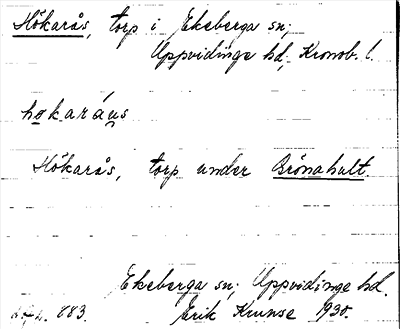 Hökarås, torp i Ekeberga sn;
Uppvidinge hd, Kronob. l.
hokaráus
Hökarås, torp under Brönahult.
Ekeberga sn; Uppvidinge hd.
883. Erik Krunse 1930.